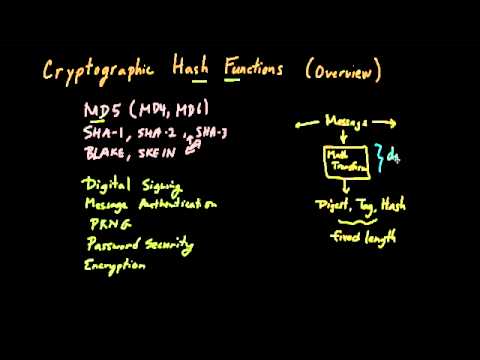 Cryptographic Hash Functions (Overview)
MD5 (MD4, MD6)
SHA-1, SHA-2, SHA-3
BLAKE, SKEIN
Digital Signing
Message Authentication
PRNG
Password Security
Encryption
Message
Math
Transform
Digest, Tag, Hash
fixed length